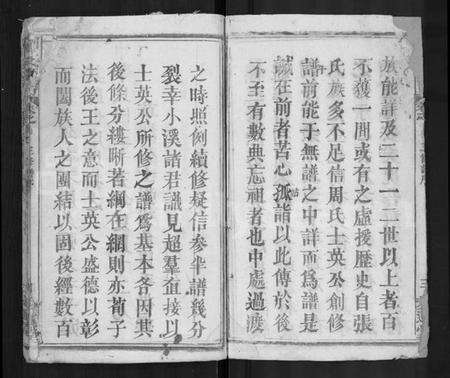 族能詳及二十一二世以上者百
不獲一間或有之虛援歷史自張
氏族多不足信周氏士英公創修
譜前能于無譜之中詳而為譜是
誠在前者苦心孤詣以此傳於後
不至有數典忘祖者也中處過渡
之時照例續修疑信參半譜幾分
裂幸小溪諸君議見超羣直接以
士英公所修之譜為基本各因其
後條分縷晰若綱在綱則亦荀子
法後王之意而士英公盛德以彰
而闔族人之團結以固後經數百